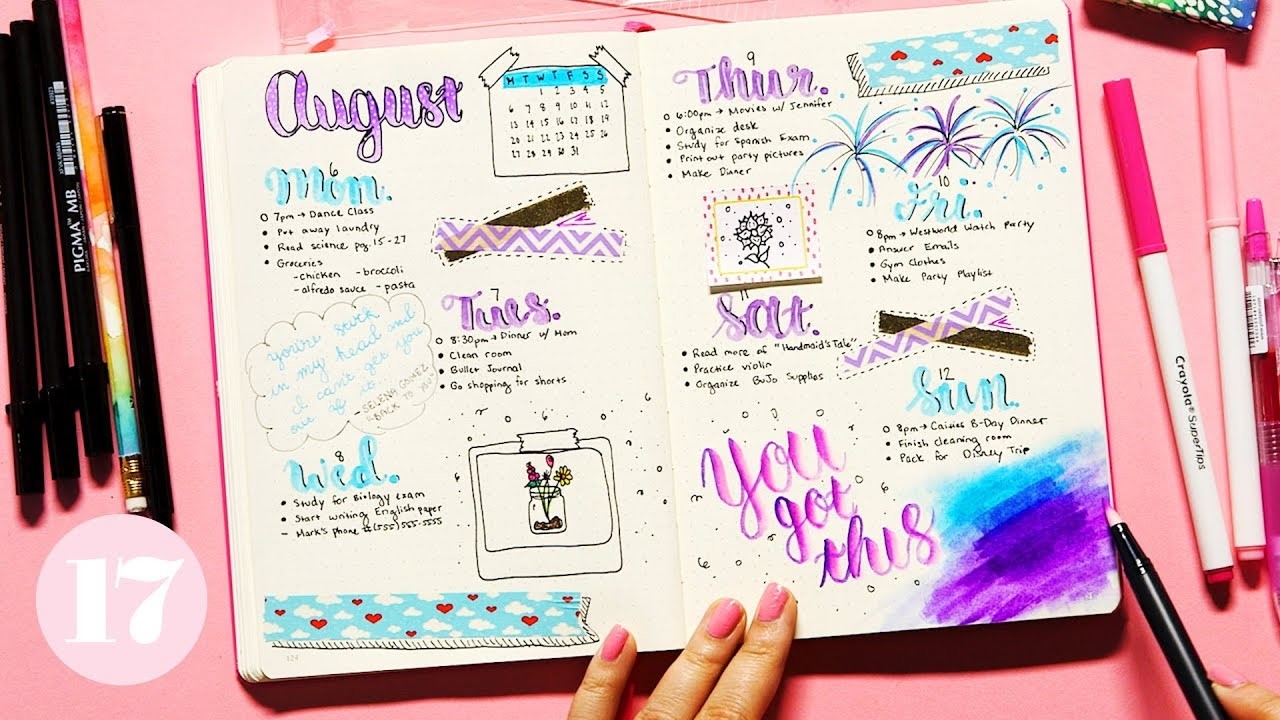 August
M T W T F S S
1 2 3 4 5
6 7 8 9 10 11 12
13 14 15 16 17 18 19
20 21 22 23 24 25 26
27 28 29 30 31
6
Mon.
7pm → Dance Class
Put away laundry
Read science pg. 15-27
Groceries
- chicken - broccoli
- alfredo sauce - pasta
you're stuck
in my head and
I can't get you
out of it
- SELENA GOMEZ
"BACK TO YOU"
7
Tues.
8:30pm → Dinner w/ Mom
Clean room
Bullet Journal
Go shopping for shorts
8
Wed.
Study for Biology exam
Start writing English paper
- Mark's phone # (555) 555-5555
124
9
Thur.
6:00pm → Movies w/ Jennifer
Organize desk
Study for Spanish Exam
Print out party pictures
Make Dinner
10
Fri.
8pm → Westworld Watch Party
Answer Emails
Gym Clothes
Make Party Playlist
11
Sat.
Read more of "Handmaid's Tale"
Practice violin
Organize BuJo Supplies
12
Sun.
8pm → Caisies B-Day Dinner
Finish cleaning room
Pack for Disney Trip
You
got
this
PIGMA MB
Crayola SuperTips
17